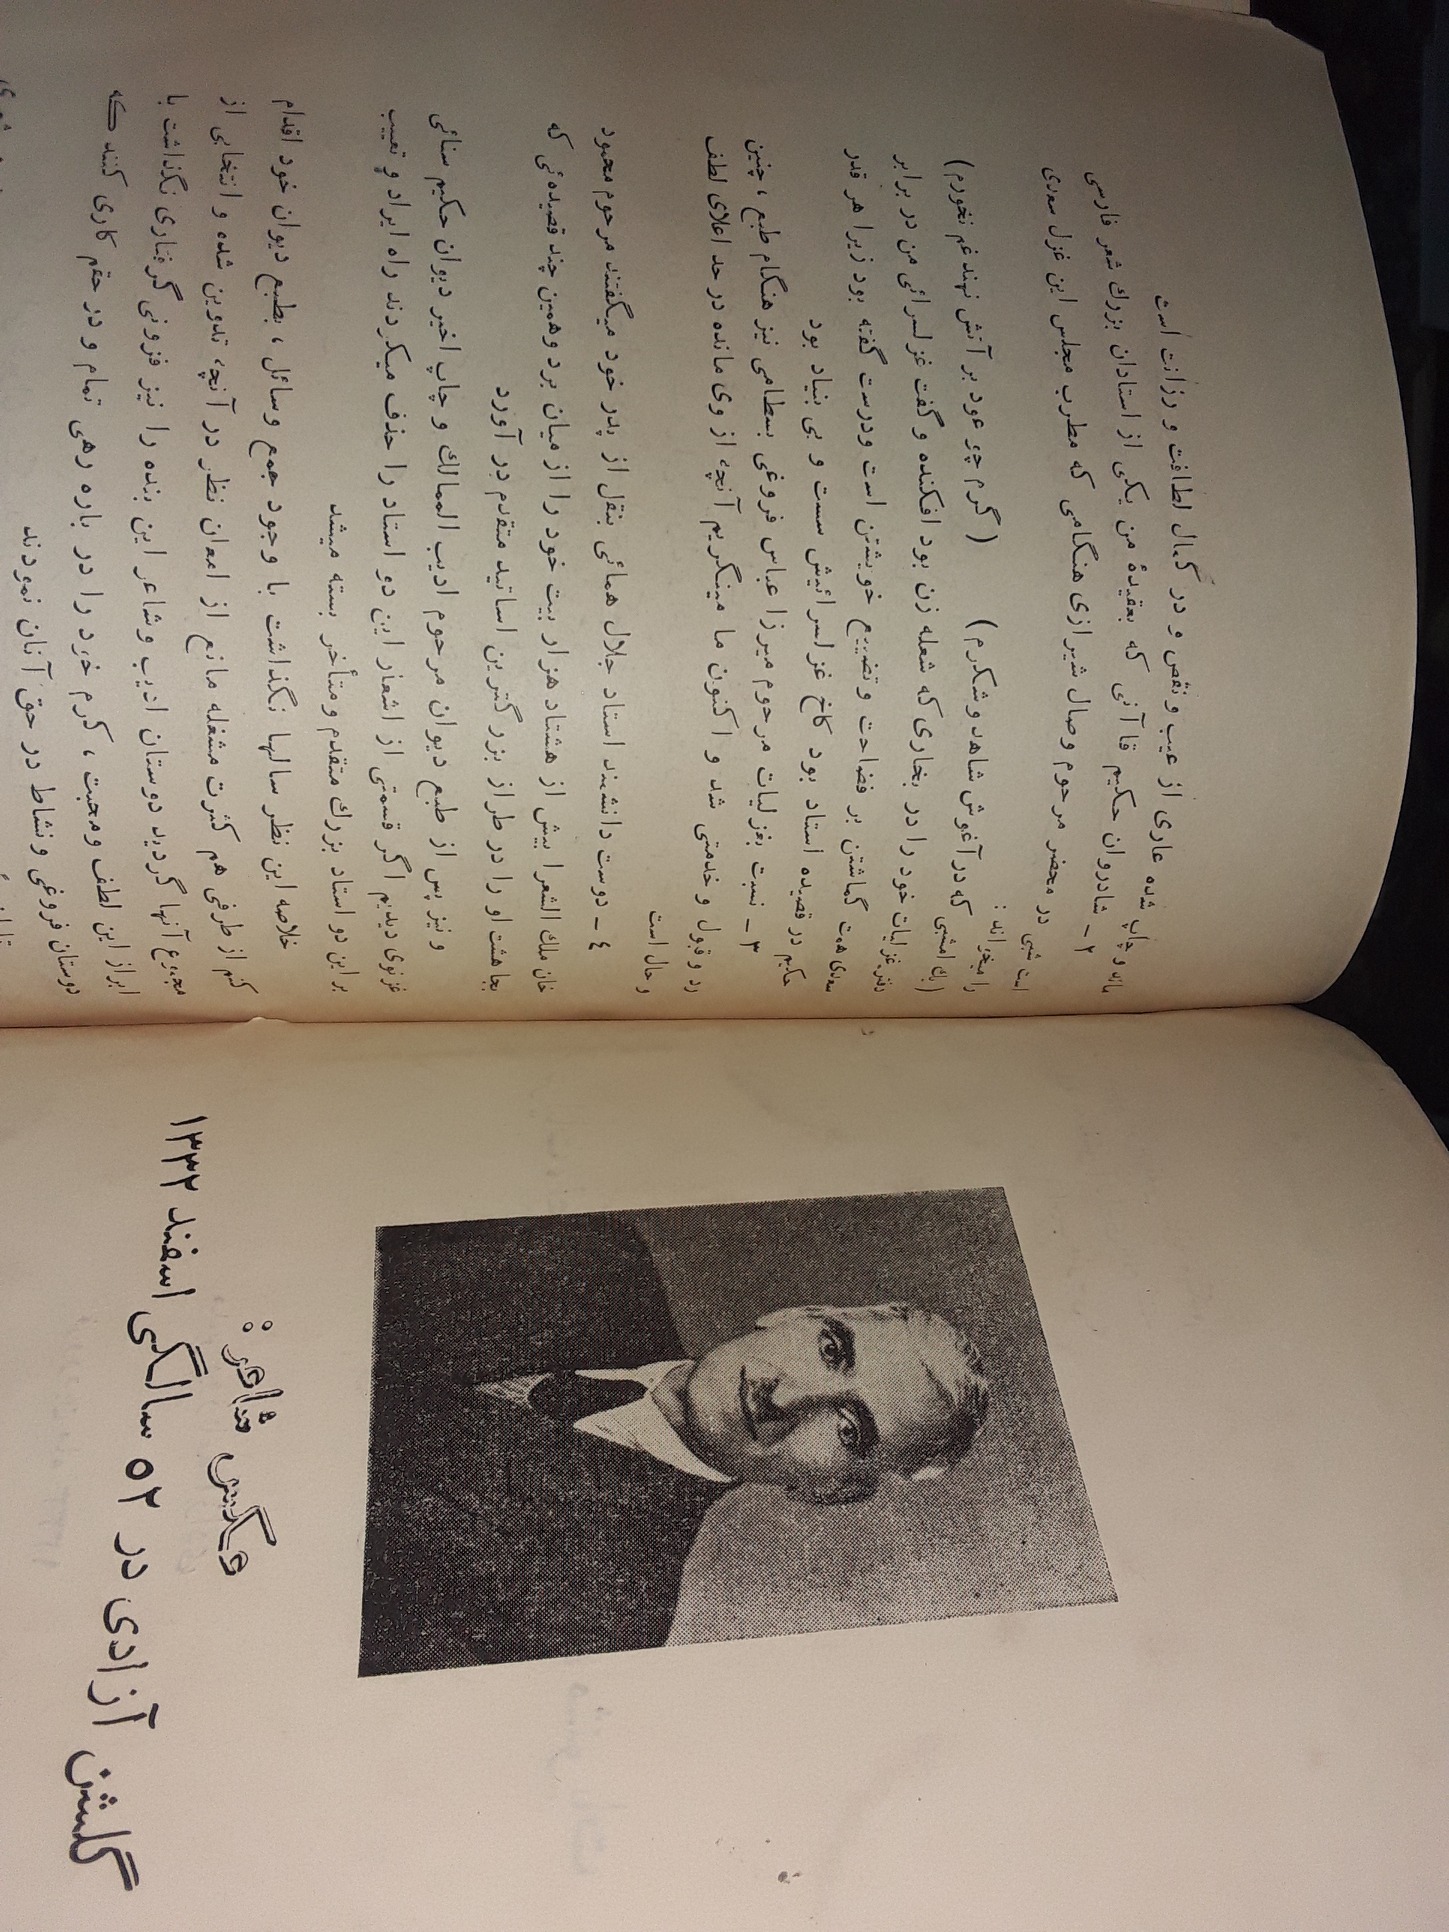 مانه و چاپ شده عاری از عیب و نقص و در کمال لطافت و رزانت است
۲ ـ شادروان حکیم قاآنی که بعقیدهٔ من یکی از استادان بزرك شعر فارسی
است شبی در محضر مرحوم وصال شیرازی هنگامی که مطرب مجلس این غزل سعدی
را میخواند :
( يك امشبی که در آغوش شاهد و شکرم ) ( گرم چو عود بر آتش نهند غم نخورم )
دفتر غزلیات خود را در بخاری که شعله زن بود افکنده و گفت غزلسرائی من در برابر
سعدی همت گماشتن بر فضاحت و تضییع خویشتن است و درست گفته بود زیرا هر قدر
حکیم در قصیده استاد بود کاخ غزلسرائیش سست و بی بنیاد بود
۳ ـ نسبت بغزلیات مرحوم میرزا عباس فروغی بسطامی نیز هنگام طبع ، چنین
رد و قبول و خدمتی شد و اکنون ما مینگریم آنچه از وی مانده در حد اعلای لطف
و حال است
٤ ـ دوست دانشمند استاد جلال همائی بنقل از پدر خود میگفتند مرحوم محمود
خان ملك الشعرا بیش از هشتاد هزار بیت خود را از میان برد و همین چند قصیده ئی که
بجا هشت او را در طراز بزرگترین اساتید متقدم در آورد
و نیز پس از طبع دیوان مرحوم ادیب الممالك و چاپ اخیر دیوان حکیم سنائی
غزنوی دیدیم اگر قسمتی از اشعار این دو استاد را حذف میکردند راه ایراد و تعییب
بر این دو استاد بزرك متقدم و متأخر بسته میشد
خلاصه این نظر سالها نگذاشت با وجود جمع وسائل ، بطبع دیوان خود اقدام
کنم از طرفی هم کثرت مشغله مانع از امعان نظر در آنچه تدوین شده و انتخابی از
مجموع آنها گردید دوستان ادیب و شاعر این بنده را نیز فزونی گرفتاری نگذاشت با
ابراز این لطف و محبت ، کرم خود را در باره رهی تمام و در حقم کاری کنند که
دوستان فروغی و نشاط در حق آنان نمودند
عکس شاعر :
گلشن آزادی در ۵۲ سالگی اسفند ۱۳۳۲